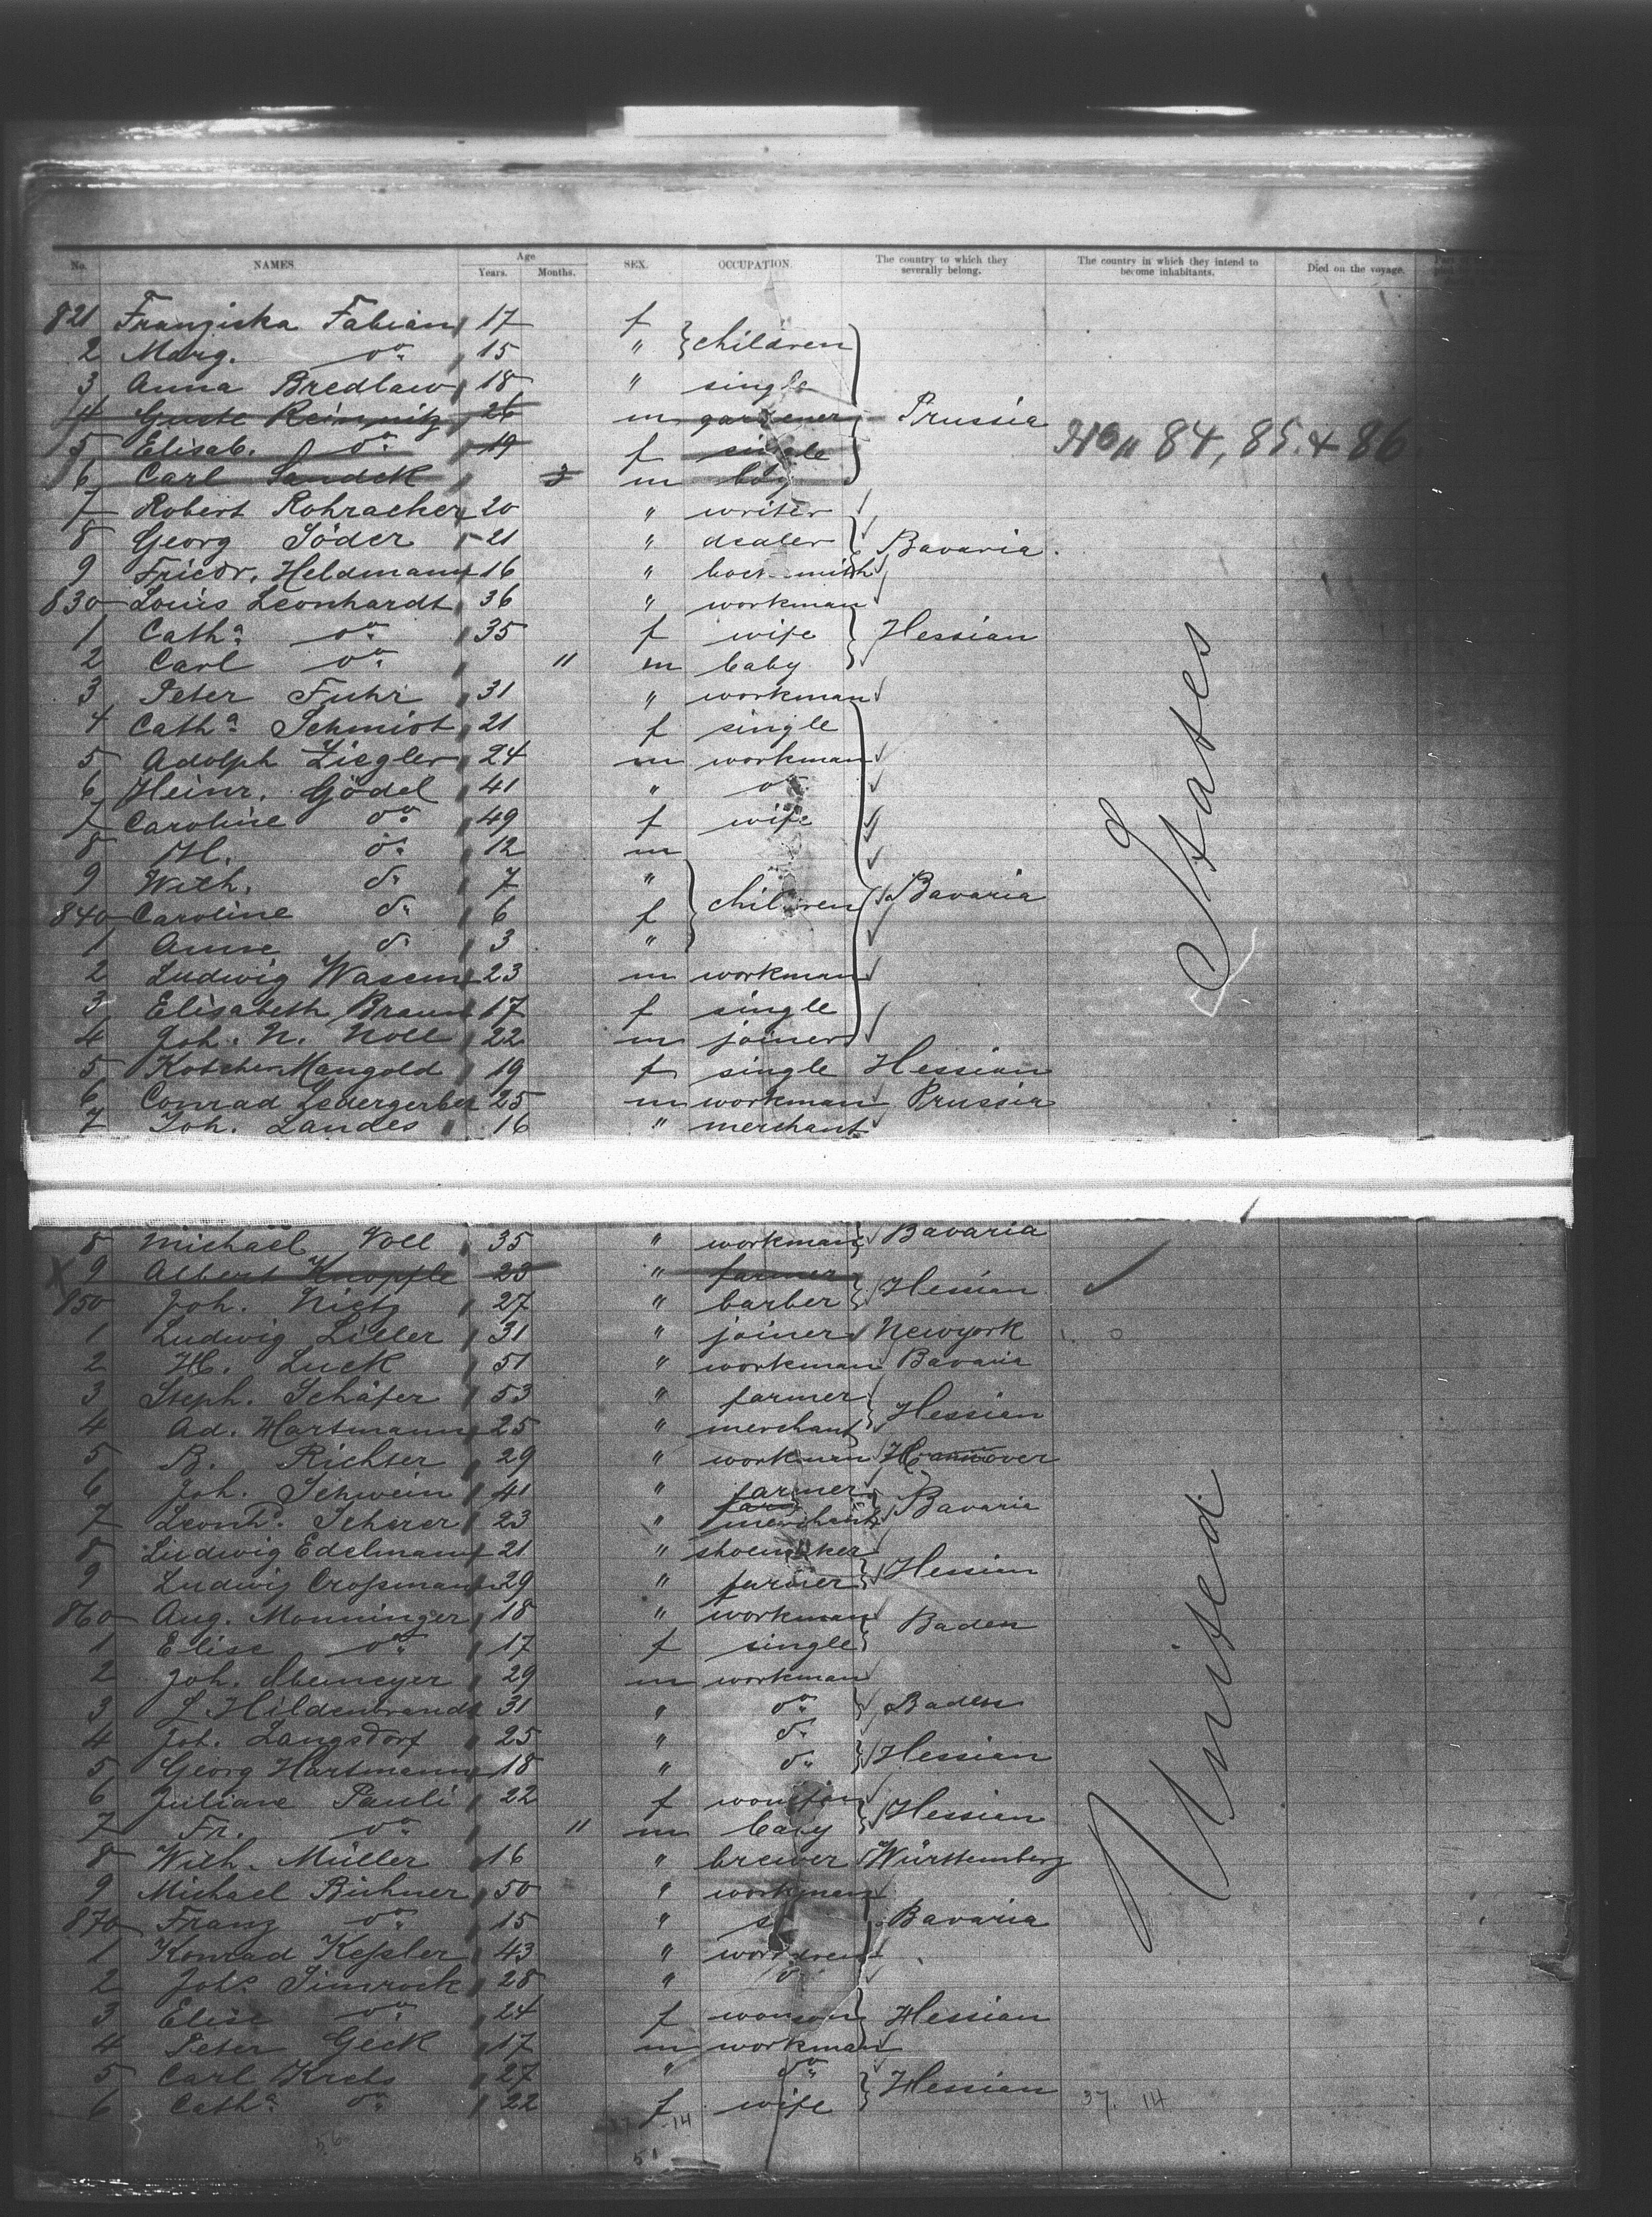 No. NAMES. Age Years. Months. SEX. OCCUPATION. The country to which they severally belong. The country in which they intend to become inhabitants. Died on the voyage.
821 Franziska Fabian 17 f
2 Marg. do 15 " children
3 Anna Bredlaw 18 " single
4 Guste Reimnitz 26 m gardener Prussia
5 Elisab. do 19 f single No 84, 85. & 86.
6 Carl Sandek 3 m boy
7 Robert Rohracher 20 " writer
8 Georg Söder 21 " dealer Bavaria.
9 Friedr. Heldmann 16 "
830 Louis Leonhardt 36 " workman
1 Catha. do 35 f wife Hessian
2 Carl do 11 m baby
3 Peter Fuhr 31 " workman
4 Catha Schmidt 21 f single
5 Adolph Ziegler 24 m workman
6 Heinr. Gödel 41 " do
7 Caroline do 49 f wife
8 H. do 12 m
9 Wilh. do 7 "
840 Caroline do 6 f children Bavaria
1 Anne do 3 "
2 Ludwig Wasem 23 m workman
3 Elisabeth Braun 17 f single
4 Joh. N. Noll 22 m joiner
5 Kätchen Mangold 19 f single Hessian
6 Conrad Ledergerber 25 m workman Prussia
7 Joh. Landes 16 " merchant
8 Michael Voll 35 " workman Bavaria
9 Albert Knopfle 23 " farmer
850 Joh. Nietz 27 " barber Hessian
1 Ludwig Liller 31 " joiner Newyork
2 H. Luck 51 " workman Bavaria
3 Steph. Schäfer 53 " farmer
4 Ad. Hartmann 25 " merchant Hessian
5 B. Richter 29 " workman Hannover
6 Joh. Schwein 41 " farmer
7 Leonhd. Scherer 23 " merchant Bavaria
8 Ludwig Edelmann 21 " shoemaker
9 Ludwig Croßmann 29 " farmer Hessian
860 Aug. Monninger 18 " workman Baden
1 Elise do 17 f single
2 Joh. 29 m workman
3 L Hildenbrand 31 " do Baden
4 Joh. Langsdorf 25 " do
5 Georg Hartmann 18 " do Hessian
6 Juliane Pauli 22 f
7 Fr. do 11 m baby Hessian
8 Wilh. Müller 16 " brewer Württemberg
9 Michael Bühner 50 " workman
870 Franz do 15 " Bavaria
1 Konrad Keßler 43 "
2 Johs. Simrock 28 "
3 Elise do 24 f woman Hessian
4 Peter Geck 17 m workman
5 Carl Krebs 27 " do
6 Catha. do 22 f wife Hessian 37. 14
United States